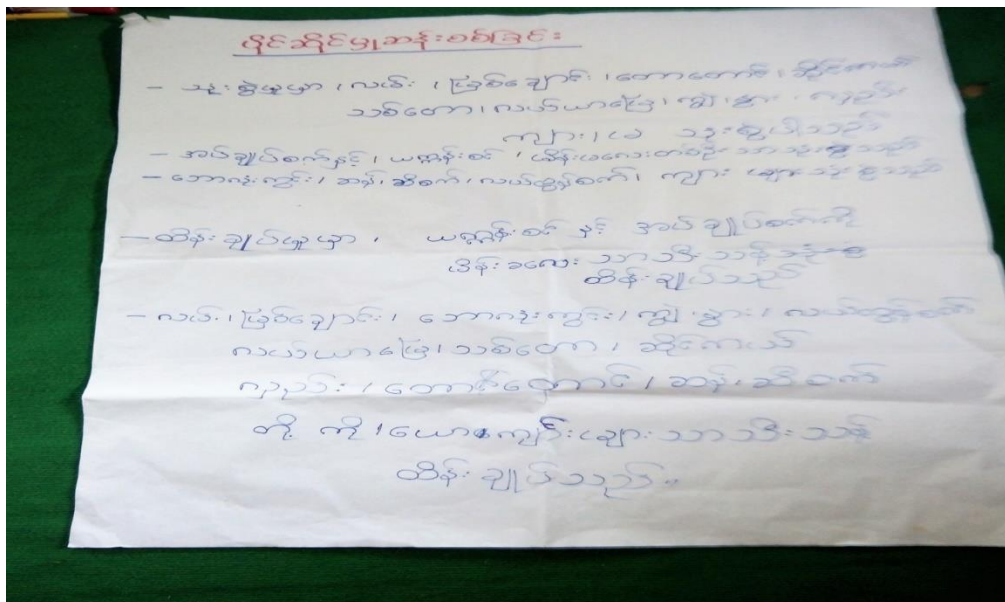 ပိုင်ဆိုင်မှုဆန်းစစ်ခြင်း
- သုံးစွဲမှုမှာ ၊ လယ် ၊ မြစ်ချောင်း ၊ တောတောင် ၊ ဆိုင်ကယ်
သစ်တော ၊ လယ်ယာမြေ ၊ ကျွဲ ၊ နွား ၊
ကျား ၊ မ သုံးစွဲပါသည်
- အပ်ချုပ်စက်နှင့် ၊ ယက္ကန်းစင် ၊ မိန်းမလေးတစ်ဦး သာသုံးစွဲသည်
- ဘောလုံးကွင်း ၊ ဆန် ၊ ဆီစက် ၊ လယ်ထွန်စက် ၊ ကျား များသုံးစွဲသည်
- ထိန်းချုပ်မှုမှာ ၊ ယက္ကန်းစင် နှင့် အပ်ချုပ်စက်ကို
မိန်းခလေး သာသီးသန့်
ထိန်းချုပ်သည်
- လယ် ၊ မြစ်ချောင်း ၊ ဘောလုံးကွင်း ၊ ကျွဲ နွား ၊ လယ်ထွန်စက်
လယ်ယာမြေ ၊ သစ်တော ၊ ဆိုင်ကယ်
၊ ဆန် ၊ ဆီစက်
တို့ ကို ၊ ယောကျာ်းများ သာသီးသန့်
ထိန်းချုပ်သည် ။